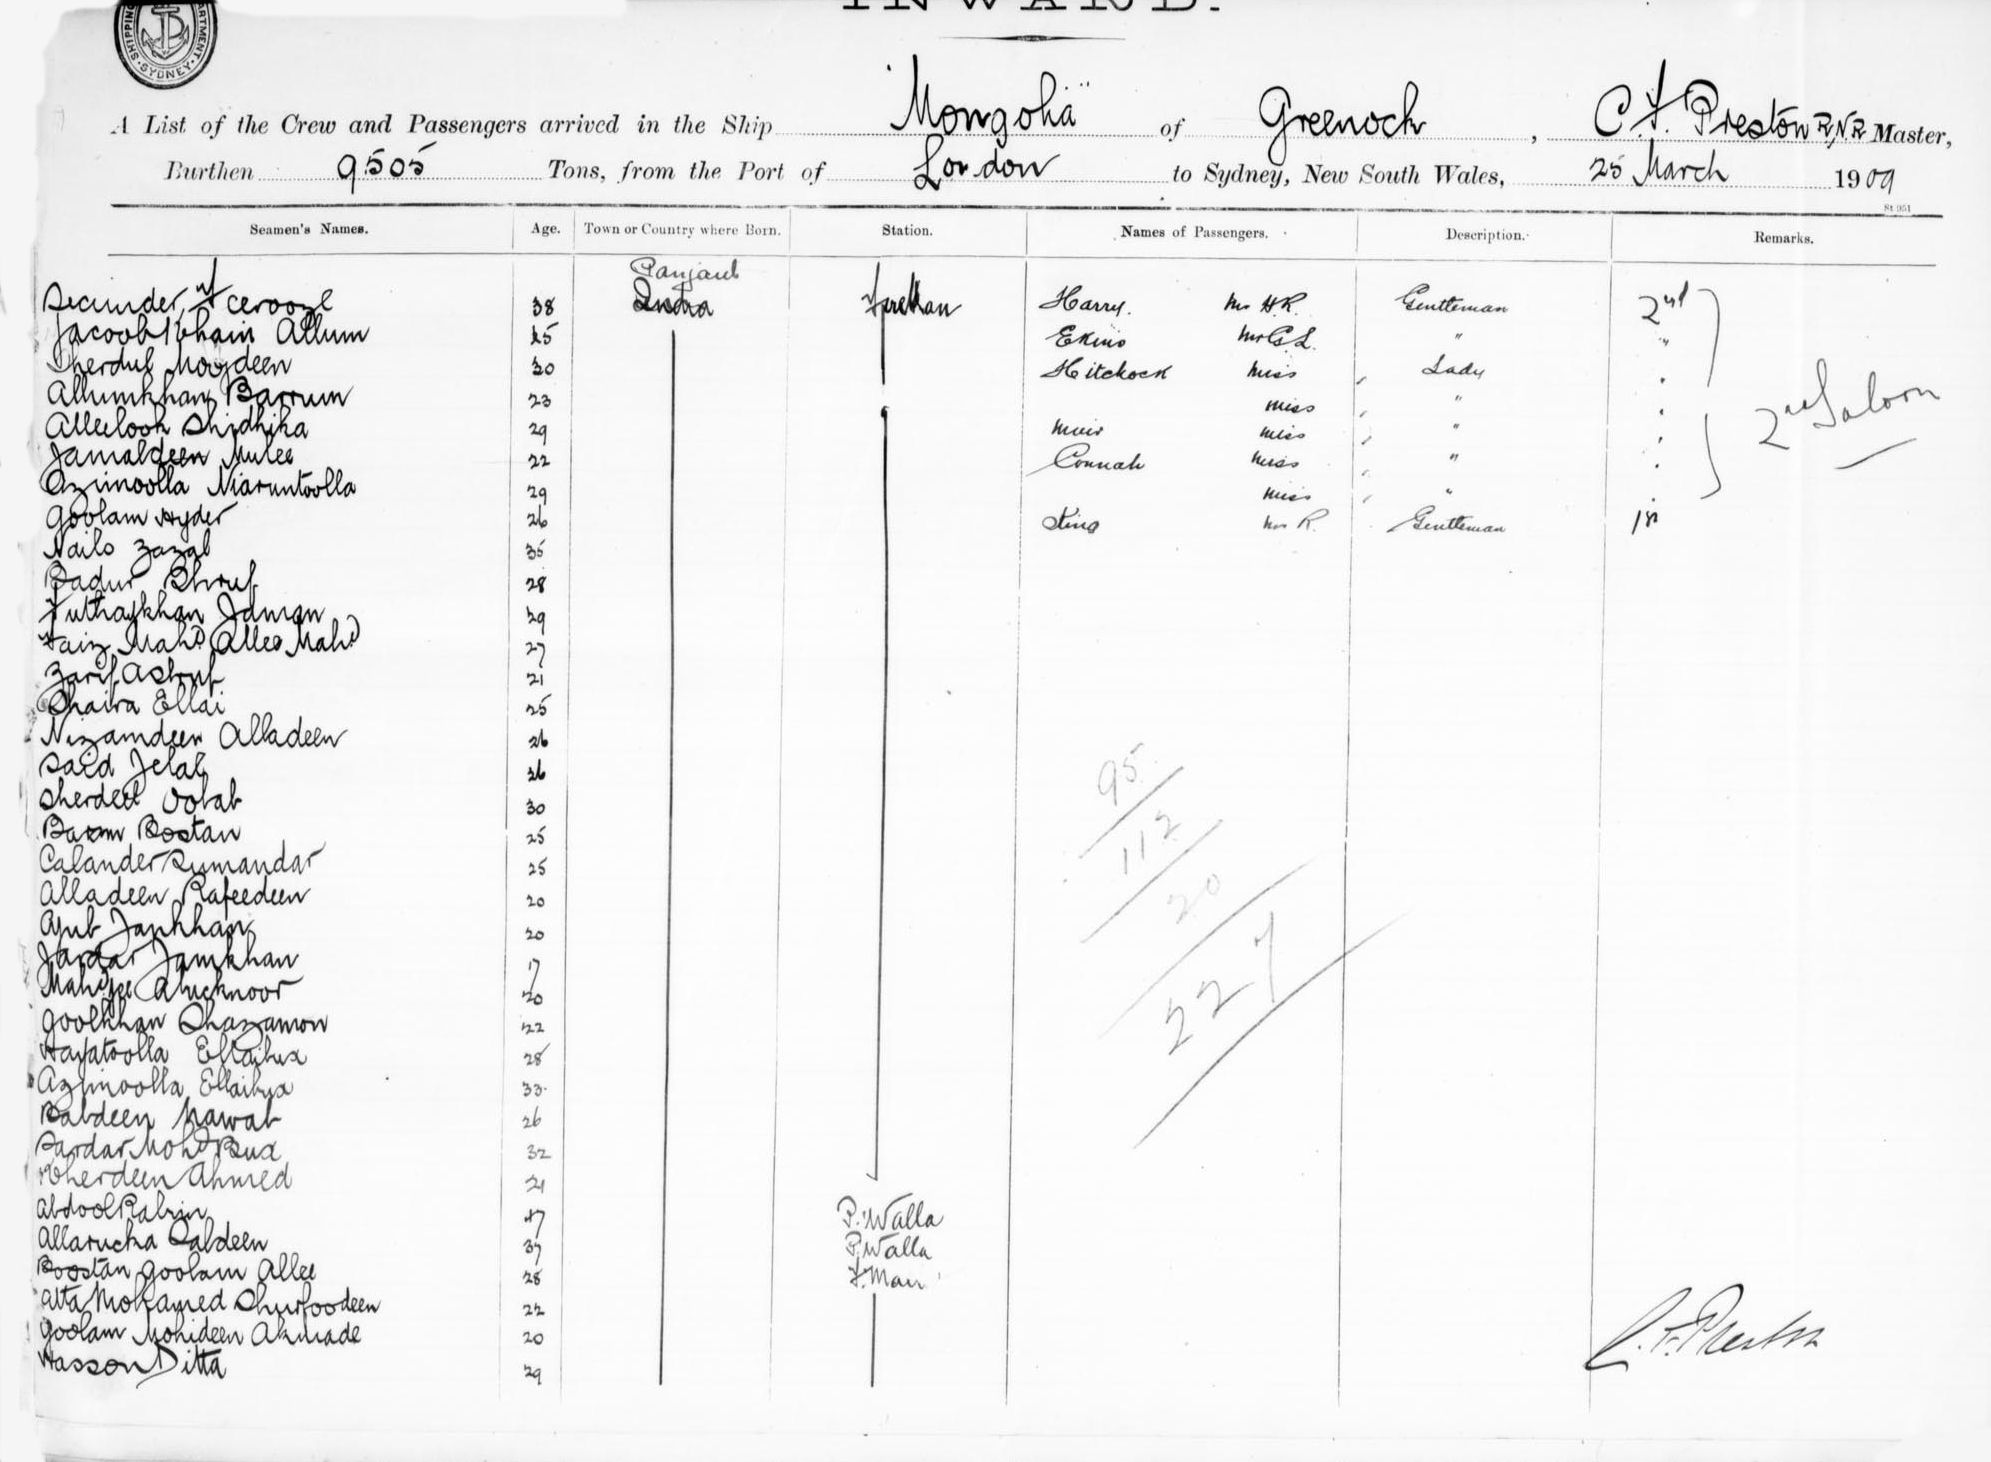 INWARD.
SHIPPING DEPARTMENT SYDNEY
A List of the Crew and Passengers arrived in the Ship "Mongolia" of Greenock, C. F. Preston R.N.R Master,
Burthen 9505 Tons, from the Port of London to Sydney, New South Wales, 25 March 1909
St 951
Seamen's Names. Age. Town or Country where Born. Station. Names of Passengers. Description. Remarks.
Panjaub
Secunder Feroozl 38 India Fireman Harry. Mr H.R. Gentleman 2nd
Jacoob Khain Allum 25 Ekins Mr G.L. " "
Sherdul Moydeen 30 Hitchcock Miss Lady
Allumkhan Barrum 23 Miss "
Alleelook Shidhika 29 Muir Miss " 2nd Saloon
Jamaldeen Mulee 22 Connah Miss "
Azimoolla Niaruntoolla 29 Miss "
Goolam Hyder 26 King Mr R. Gentleman 1st
Nailo Zazal 35
Badur Shruf 28
Futhaykhan Jdman 29
Faiz Mahd Allee Mahd 27
Zarif Ashruf 21
Shaira Ellai 25
Nizamdeen Alladeen 26
Said Jelal 36
Sherdeel Oolab 30
Bostan 25
Calander Sumandar 25
Alladeen Rafeedeen 20
Ayub Jankhan 20
Sardar Jamkhan 17
Alucknoor 20
Goolkhan Shazamon 22
Hayatoolla Ellaibux 28
Azimoolla Ellaibux 33
Babdeen Nawab 26
Sardar Mohd Bux 32
Kherdeen Ahmed 21
Abdool Rahim 47 P. Walla
Allarucka Babdeen 37 P. Walla
Boostan Goolam Allee 28 F. Man
Atta Mohamed Shurfoodeen 22
Goolam Mohideen Akmade 20
Hasson Ditta 29
95
112
20
227
C. F. Preston